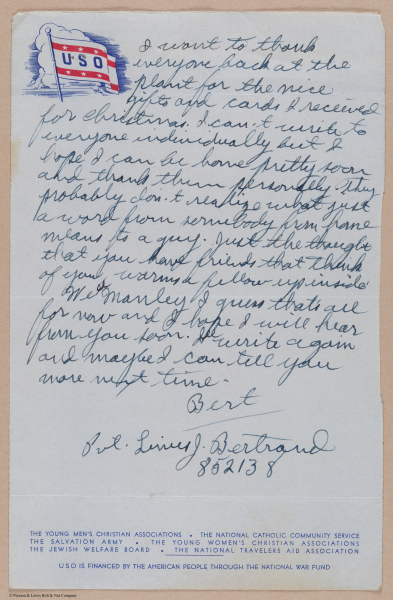 USO
I want to thank
everyone back at the
plant for the nice
gifts and cards I received
for christmas. I can't write to
everyone individually but I
hope I can be home pretty soon
and thank them personally. They
probably don't realize what just
a word from somebody from home
means to a guy. Just the thought
that you have friends that think
of you warms a fellow up inside
Well Manley I guess thats all
for now and I hope I will hear
from you soon. I'll write again
and maybe I can tell you
more next time.
Bert
Pvt. J. Bertrand
852138
THE YOUNG MEN'S CHRISTIAN ASSOCIATIONS • THE NATIONAL CATHOLIC COMMUNITY SERVICE
THE SALVATION ARMY • THE YOUNG WOMEN'S CHRISTIAN ASSOCIATIONS
THE JEWISH WELFARE BOARD • THE NATIONAL TRAVELERS AID ASSOCIATION
USO IS FINANCED BY THE AMERICAN PEOPLE THROUGH THE NATIONAL WAR FUND